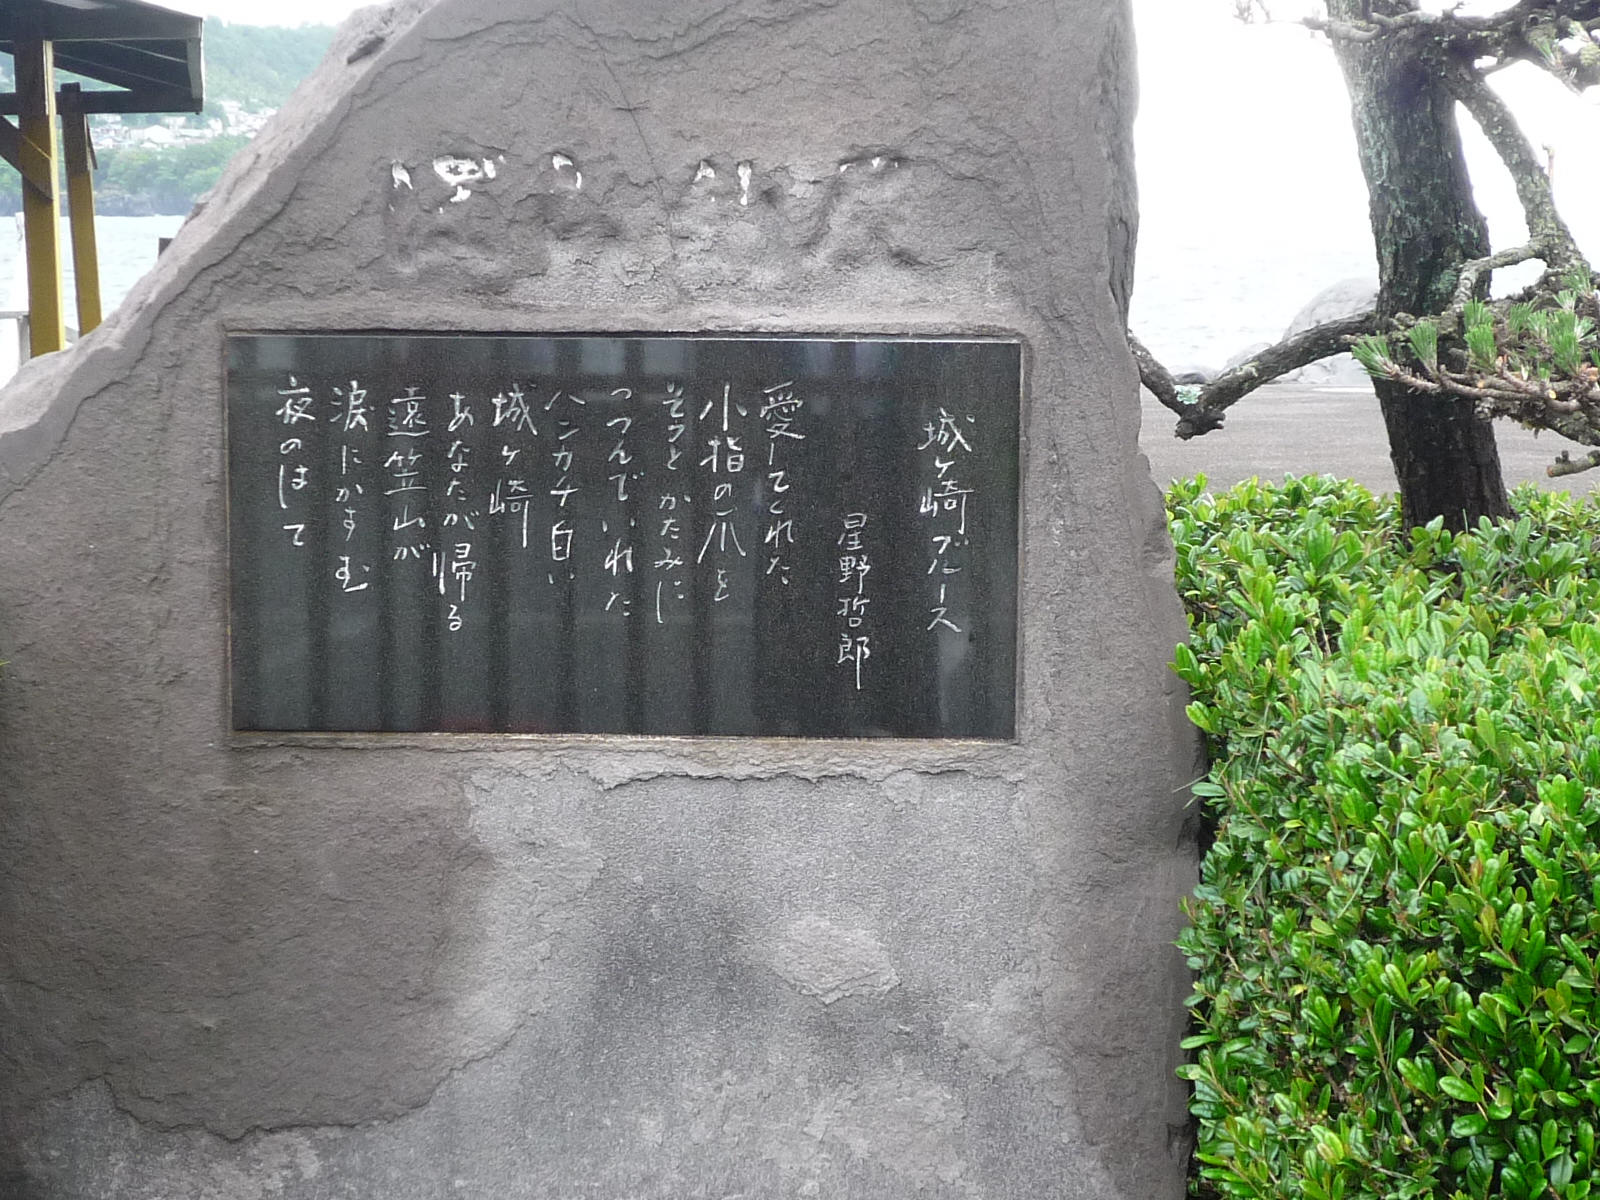 城ヶ崎ブルース
星野哲郎
愛してくれた
小指の爪を
そっとかたみに
つつんでいれた
ハンカチ白い
城ヶ崎
あなたが帰る
遠笠山が
涙にかすむ
夜のはて